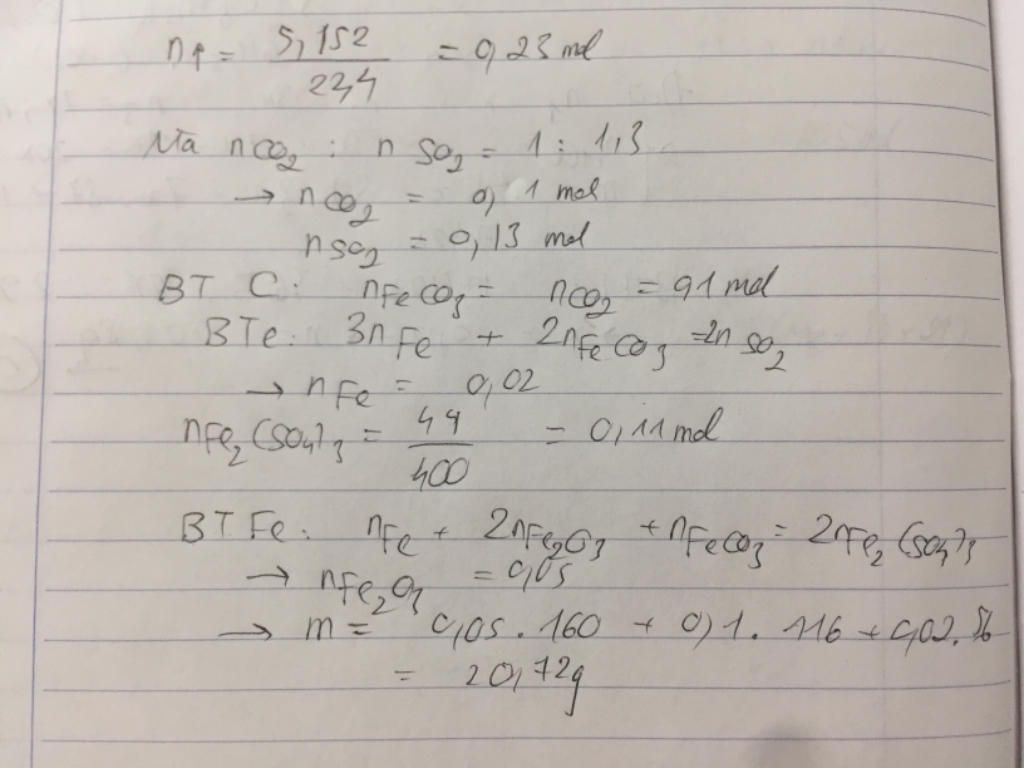 n↑ = 5,152 / 22,4 = 0,23 mol
Mà nCO2 : n SO2 = 1 : 1,3
→ nCO2 = 0,1 mol
nSO2 = 0,13 mol
BT C: nFeCO3 = nCO2 = 0,1 mol
BTe: 3nFe + 2nFeCO3 = 2n SO2
→ nFe = 0,02
nFe2(SO4)3 = 44 / 400 = 0,11 mol
BT Fe: nFe + 2nFe2O3 + nFeCO3 = 2nFe2(SO4)3
→ nFe2O3 = 0,05
→ m = 0,05 . 160 + 0,1 . 116 + 0,02 . 56
= 20,72g